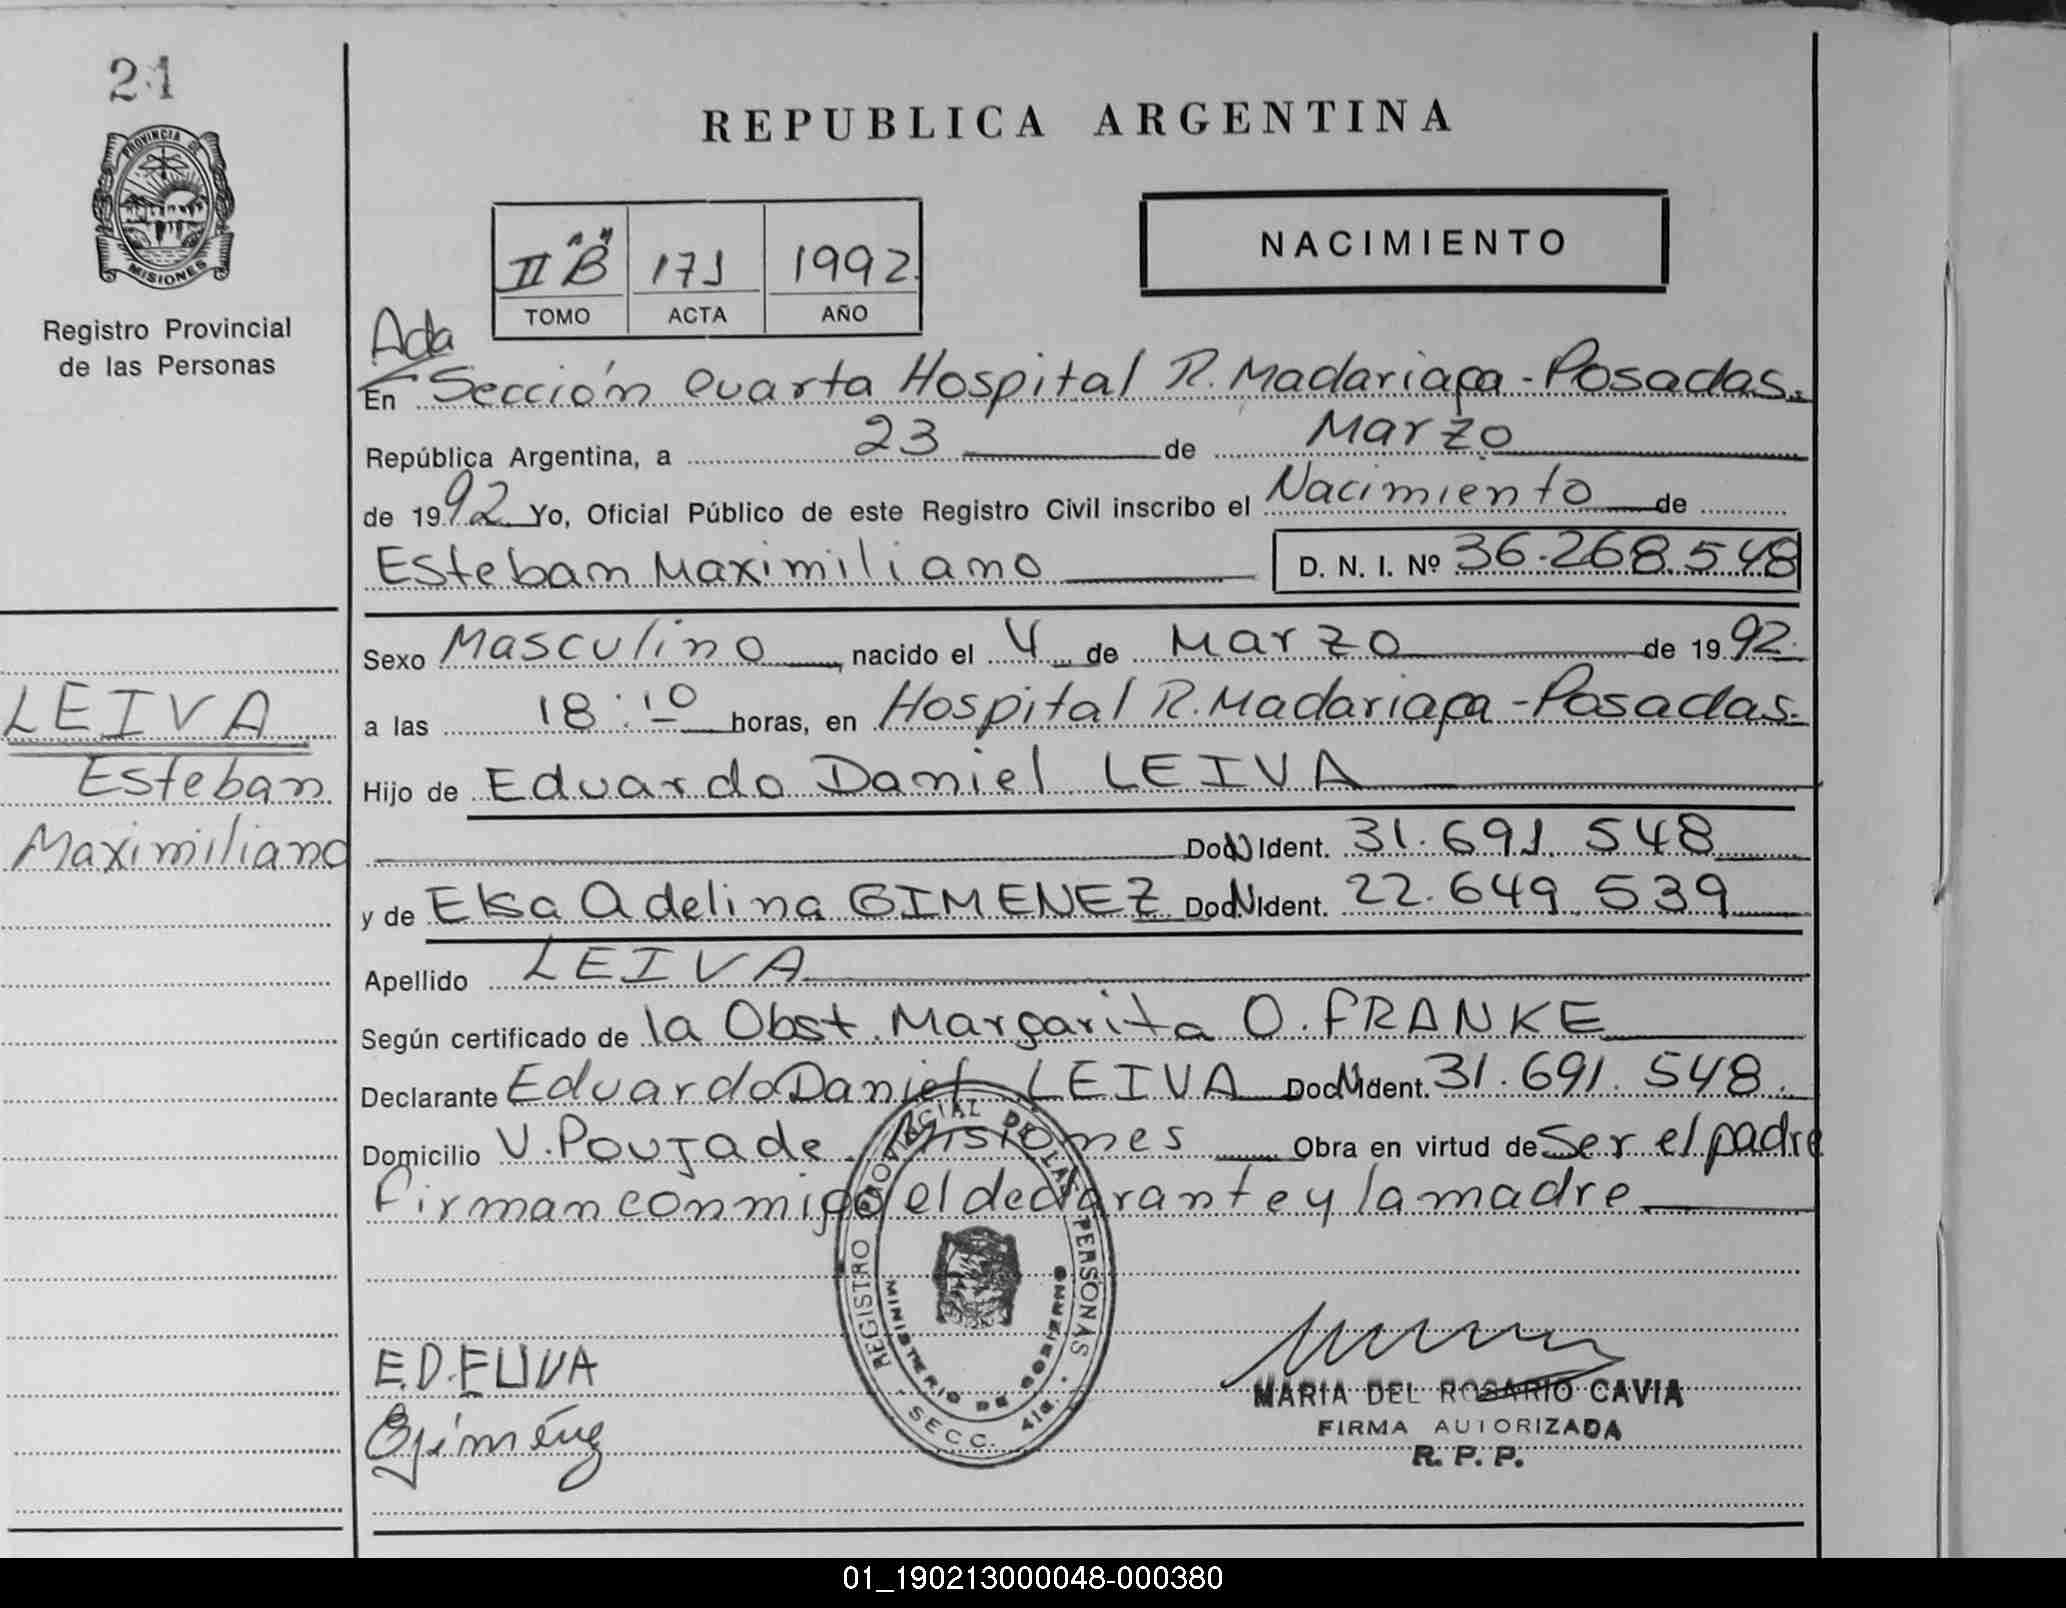 21
PROVINCIA DE
MISIONES
Registro Provincial
de las Personas
REPUBLICA ARGENTINA
II "B" 171 1992
TOMO ACTA AÑO
NACIMIENTO
En Sección Cuarta Hospital R. Madariaga - Posadas.
República Argentina, a 23 de Marzo
de 1992 Yo, Oficial Público de este Registro Civil inscribo el Nacimiento de
Esteban Maximiliano D. N. I. Nº 36.268.548
Sexo Masculino, nacido el 4 de Marzo de 1992.
a las 18:10 horas, en Hospital R. Madariaga - Posadas.
LEIVA
Esteban
Maximiliano
Hijo de Eduardo Daniel LEIVA
Ident. 31.691.548
y de Elsa Adelina GIMENEZ Ident. 22.649.539
Apellido LEIVA
Según certificado de la Obst. Margarita O. FRANKE
Declarante Eduardo Daniel LEIVA Ident. 31.691.548.
Domicilio V. Poujade. Misiones Obra en virtud de Ser el padre
Firman conmigo el declarante y la madre
REGISTRO PROVINCIAL DE LAS PERSONAS
MINISTERIO DE GOBIERNO
SECC. 4ta.
MARIA DEL ROSARIO CAVIA
FIRMA AUTORIZADA
R. P. P.
01_190213000048-000380